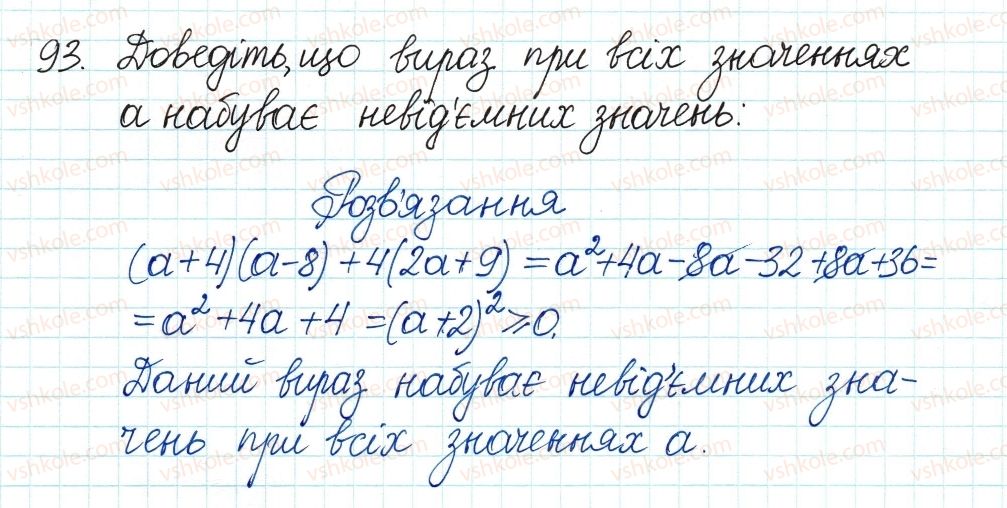 93. Доведіть, що вираз при всіх значеннях
а набуває невід'ємних значень:
Розв'язання
(a+4)(a-8)+4(2a+9)=a²+4a-8a-32+8a+36=
=a²+4a+4=(a+2)²≥0.
Даний вираз набуває невід'ємних зна-
чень при всіх значеннях а.
vshkole.com